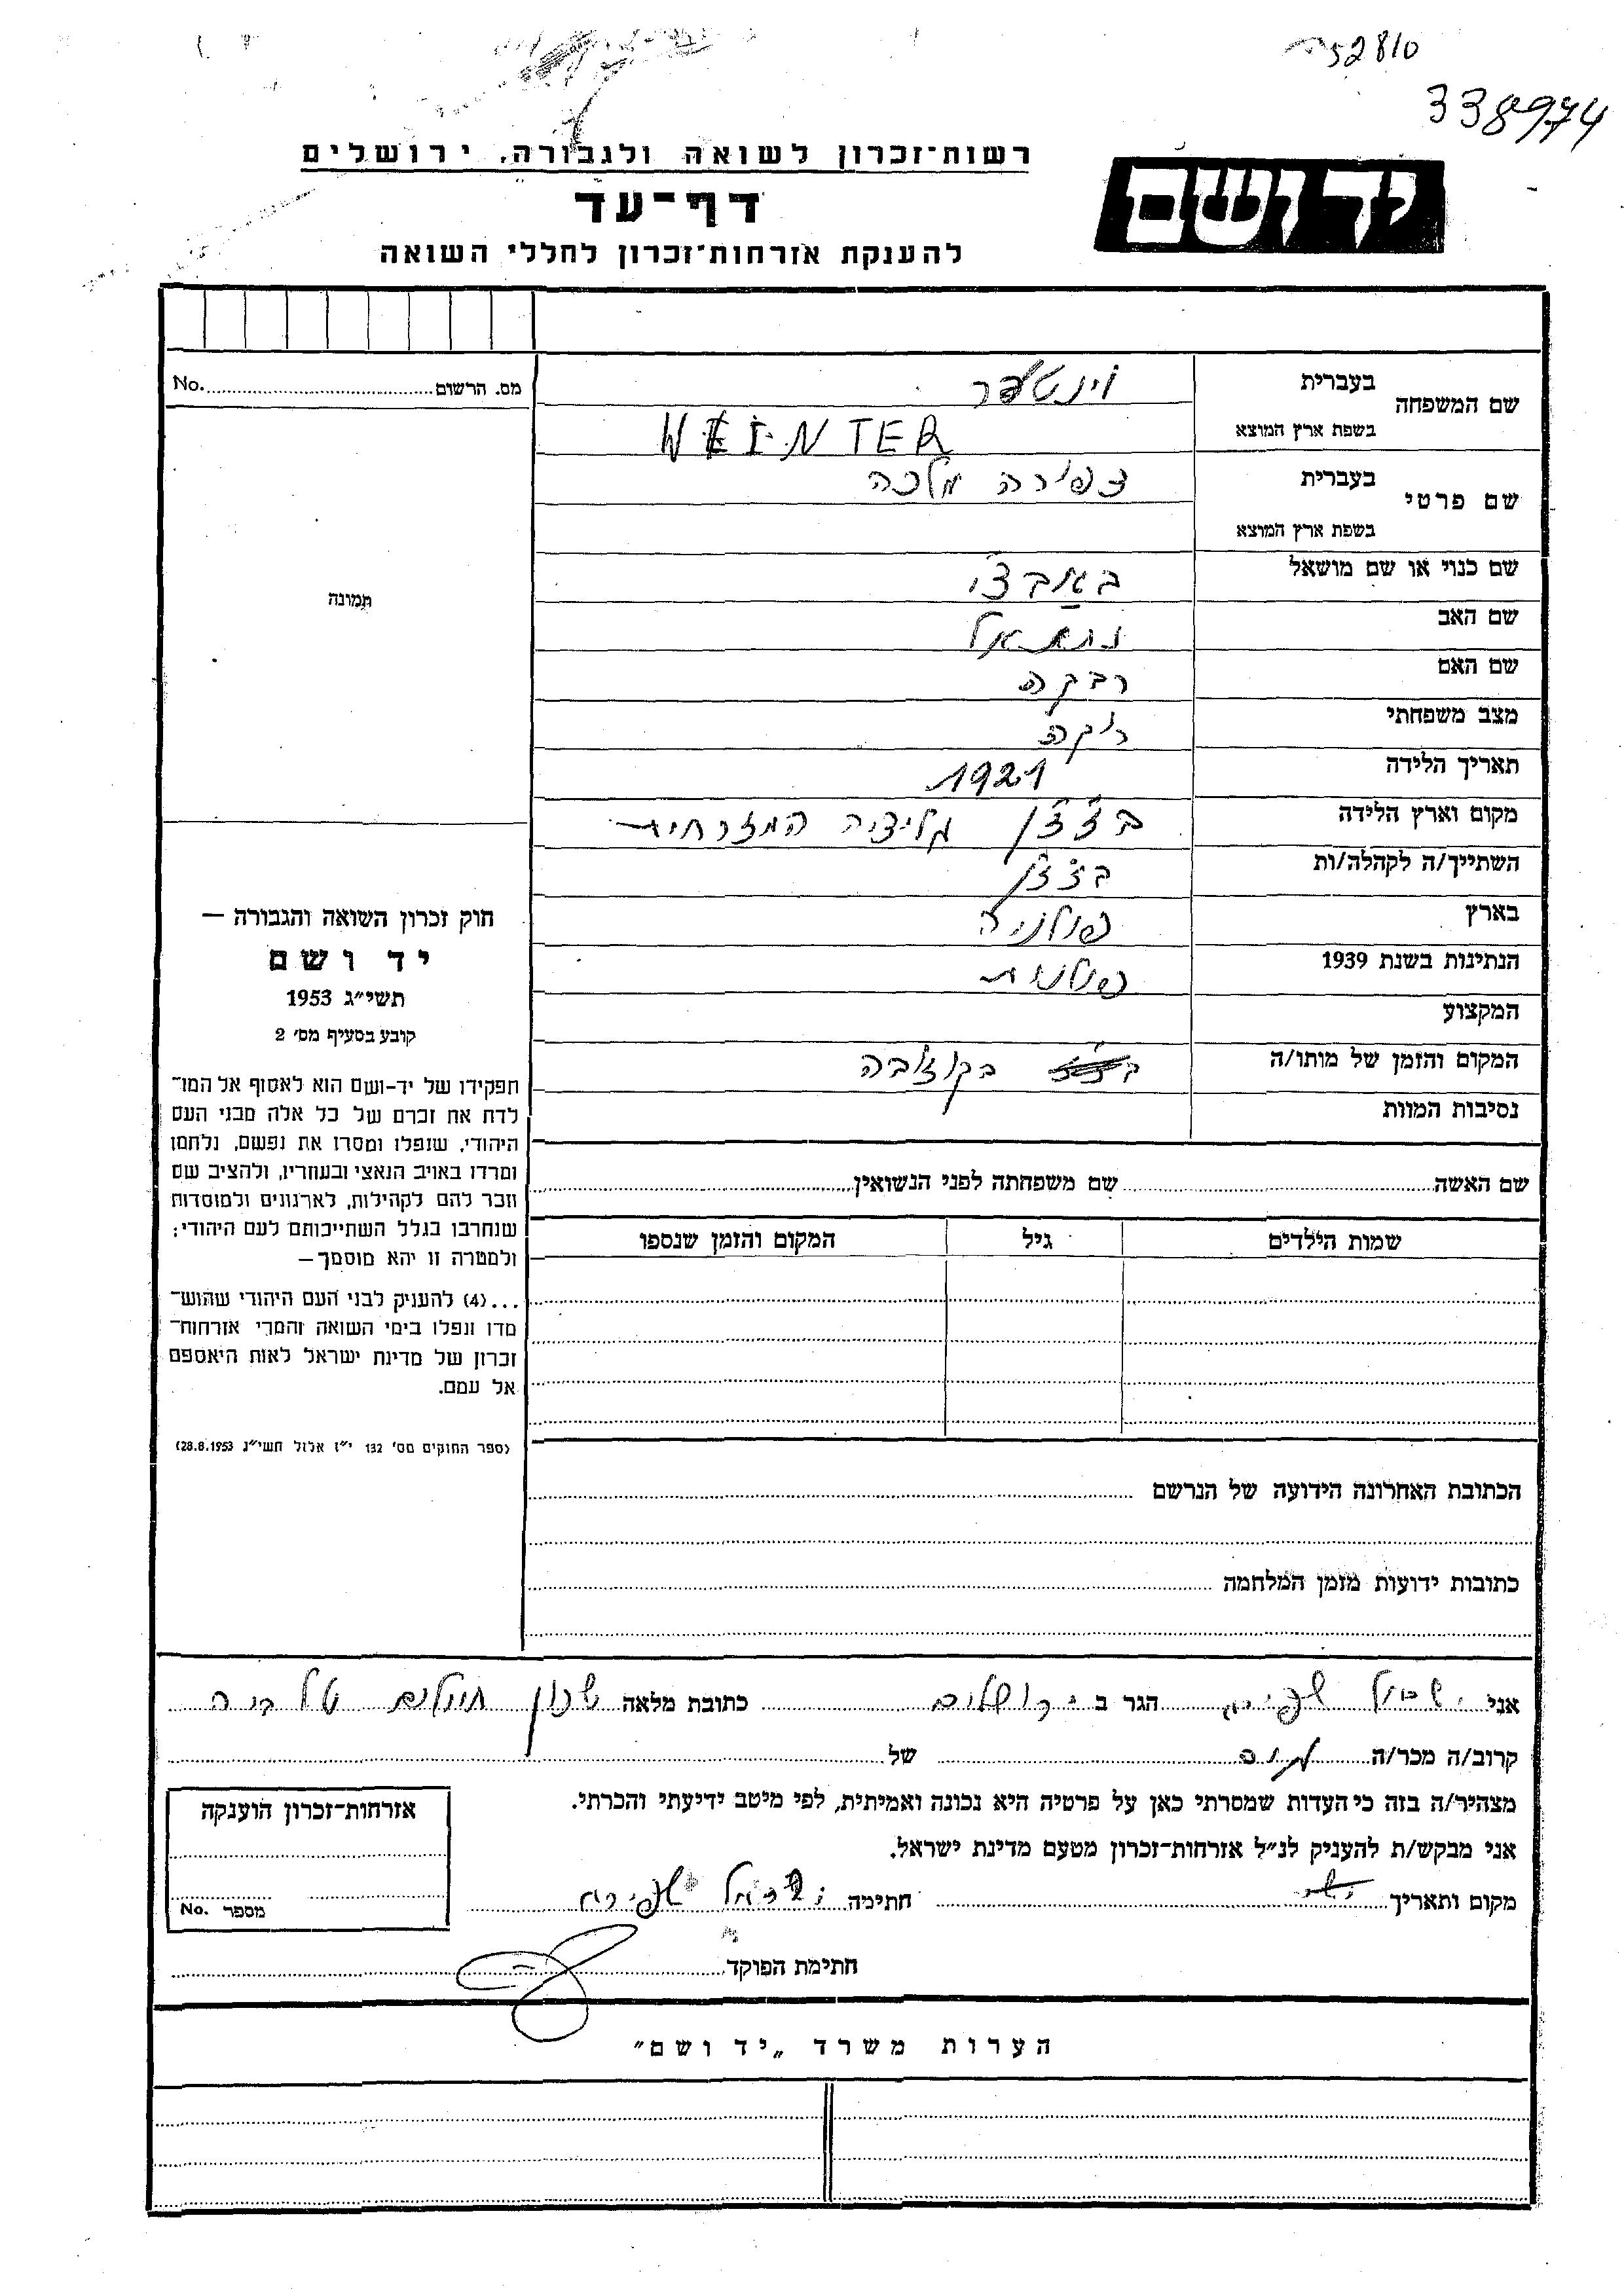 52810
338974
יד ושם
רשות־זכרון לשואה ולגבורה, ירושלים
דף־עד
להענקת אזרחות־זכרון לחללי השואה
מס. הרשום No.
תמונה
שם המשפחה
בעברית
ווינטער
בשפת ארץ המוצא
WEINTER
שם פרטי
בעברית
צפירה מלכה
בשפת ארץ המוצא
שם כנוי או שם מושאל
שם האב נתאל
שם האם רבקה
מצב משפחתי רוקה
תאריך הלידה 1921
מקום וארץ הלידה גליציה המזרחית
השתייך/ה לקהלה/ות
בארץ פולניה
הנתינות בשנת 1939 פולנית
המקצוע
המקום והזמן של מותו/ה
נסיבות המוות
חוק זכרון השואה והגבורה —
יד ושם
תשי״ג 1953
קובע בסעיף מס׳ 2
תפקידו של יד-ושם הוא לאסוף אל המו־
לדת את זכרם של כל אלה מבני העם
היהודי, שנפלו ומסרו את נפשם, נלחמו
ומרדו באויב הנאצי ובעוזריו, ולהציב שם
וזכר להם לקהילות, לארגונים ולמוסדות
שנחרבו בגלל השתייכותם לעם היהודי;
ולמטרה זו יהא מוסמך —
...(4) להעניק לבני העם היהודי שהוש־
מדו ונפלו בימי השואה והמרי אזרחות־
זכרון של מדינת ישראל לאות היאספם
אל עמם.
(ספר החוקים מס׳ 132 י״ז אלול תשי״ג 28.8.1953)
שם האשה שם משפחתה לפני הנשואין
שמות הילדים גיל המקום והזמן שנספו
הכתובת האחרונה הידועה של הנרשם
כתובות ידועות מזמן המלחמה
אני ישראל שפירא הגר ב ירושלים כתובת מלאה שכון חיילים טלביה
קרוב/ה מכר/ה של
מצהיר/ה בזה כי העדות שמסרתי כאן על פרטיה היא נכונה ואמיתית, לפי מיטב ידיעתי והכרתי.
אני מבקש/ת להעניק לנ״ל אזרחות־זכרון מטעם מדינת ישראל.
מקום ותאריך חתימה ישראל שפירא
חתימת הפוקד
אזרחות־זכרון הוענקה
מספר No.
הערות משרד „יד ושם״